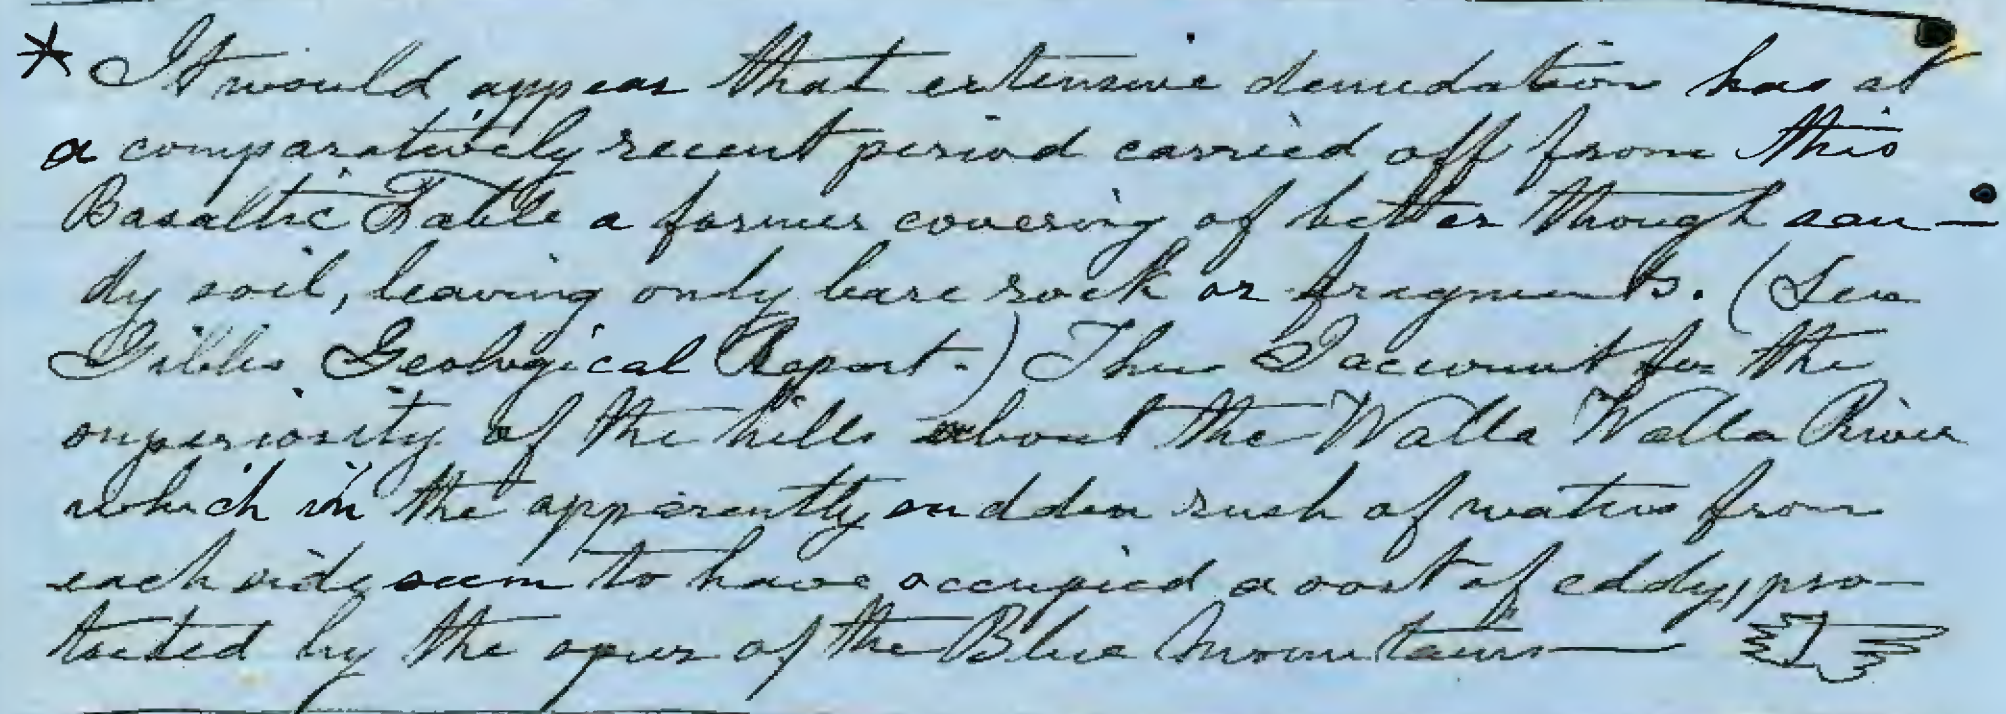 * It would appear that extensive denudation has at
a comparatively recent period carried off from this
Basaltic Table a former covering of better though san-
dy soil, leaving only bare rock or fragments. (See
Gibbs Geological Report.) Thus I account for the
superiority of the hills about the Walla Walla River
which in the apparently sudden rush of waters from
each side seem to have occupied a sort of eddy, pro-
tected by the spur of the Blue Mountains